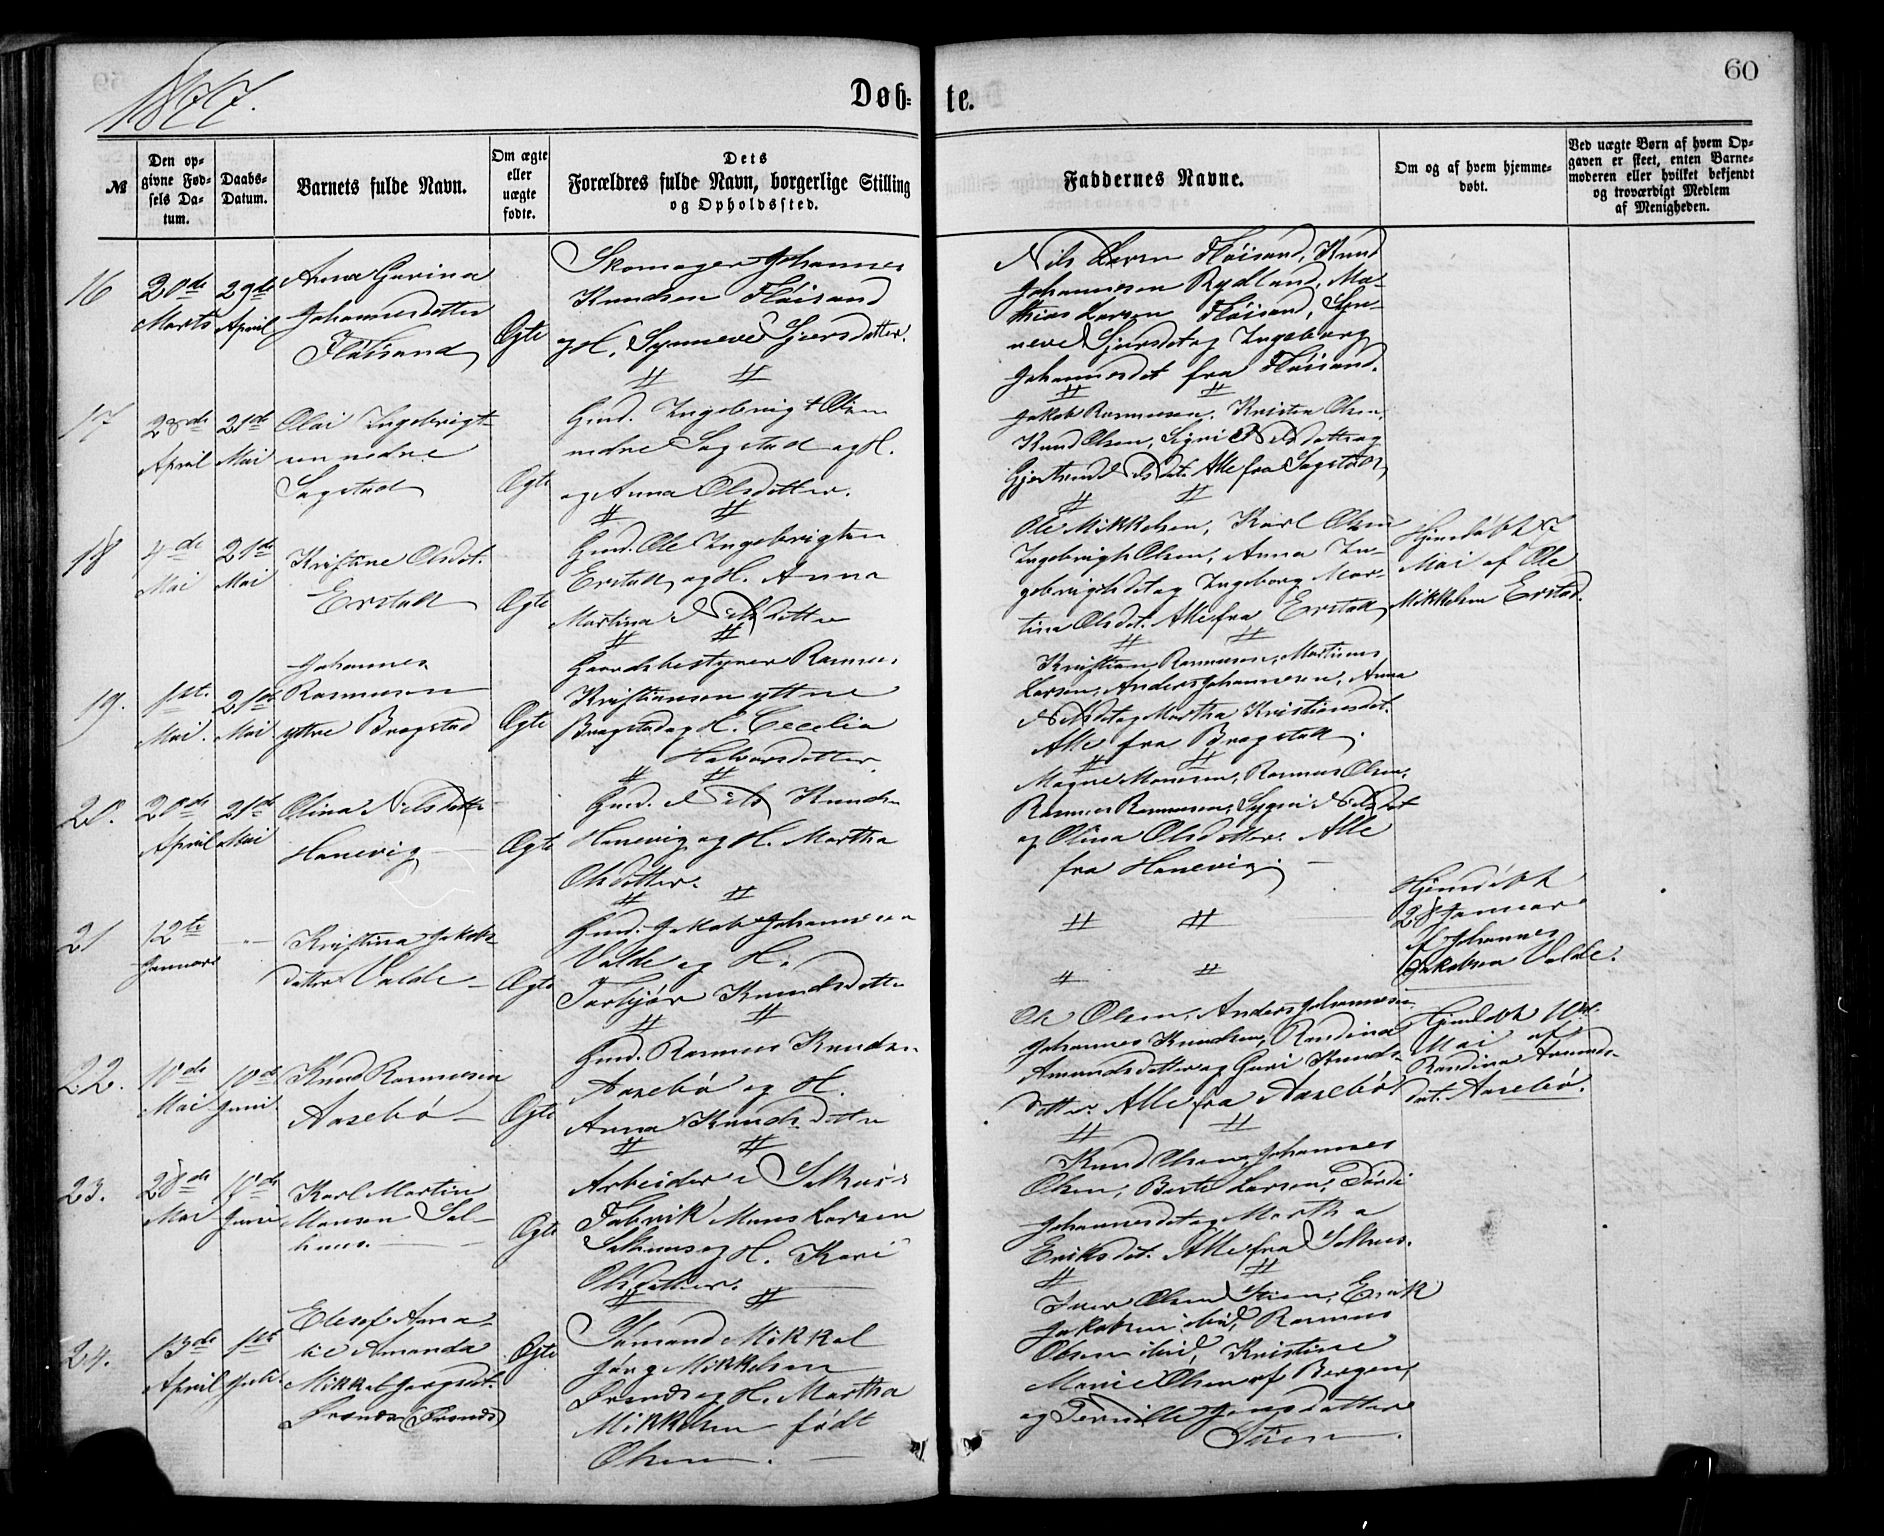 1877.
Døb=
te.
60
№
Den op=
givne Fød=
sels Da=
tum.
Daabs=
Datum.
Barnets fulde Navn.
Om ægte
eller
uægte
fødte.
Dets
Forældres fulde Navn, borgerlige Stilling
og Opholdssted.
Faddernes Navne.
Om og af hvem hjemme=
døbt.
Ved uægte Børn af hvem Op=
gaven er skeet, enten Barne=
moderen eller hvilket bekjendt
og troværdigt Medlem
af Menigheden.
16
Marts
29de
April
Anna Gurina
Johannesdatter
Fløisand
Ægte
Skomager Johannes
Knudsen Fløisand
og H. Synneve Sjursdatter.
Nils Larsen Fløisand, Knud
Johannesen Rydland, Ma-
thias Larsen Fløisand, Syn-
neve Sjursdet og Ingeborg
Johannesdet fra Fløisand.
17
23de
April
21de
Mai
Olai Ingebrigt-
sen nedre
Sagstad
Ægte
Gmd. Ingebrigt Olsen
nedre Sagstad og H.
og Anna Olsdatter.
Jakob Rasmussen, Kristen Olsen,
Knud Olsen, Sigri Nilsdatter og
Gjertrud Nilsdet. Alle fra Sagstad
18
4de
Mai
21de
Mai
Kristine Olsdet.
Erstad
Ægte
Gmd. Ole Ingebrigtsen
Erstad og H. Anna
Martina Nilsdatter
Ole Mikkelsen, Karl Olsen
Ingebrigt Olsen, Anna In-
gebrigtsdet og Ingeborg Mar-
tina Olsdet. Alle fra Erstad
Hjemdøbt
Mai af Ole
Mikkelsen Erstad.
19.
1ste
Mai.
21de
Mai
Johannes
Rasmussen
yttre Bragstad
Ægte
Gaardsbestyrer Rasmus
Kristiansen yttre
Bragstad og H. Cecelia
Halvorsdatter.
Kristian Rasmussen, Martinus
Larsen, Anders Johannesen, Anna
Nilsdet og Martha Kristiansdet.
Alle fra Bragstad.
20.
April
21de
Mai
Olina Nilsdatter
Hanevig
Ægte
Gmd. Nils Knudsen
Hanevig og H. Martha
Olsdatter.
Magne Monsen, Rasmus Olsen,
Rasmus Rasmussen, Sygni Nilsdet
og Olina Olsdatter. Alle
fra Hanevig.
21
12te
Januar
Kristina Jakobs-
datter Valde
Ægte
Gmd. Jakob Johannesen
Valde og H.
Torbjør Knudsdatter
Hjemdøbt
28 Januar
af Johannes
Jakobsen Valde.
22.
10de
Mai
10de
Juni
Knud Rasmussen
Aasebø
Ægte
Gmd. Rasmus Knudsen
Aasebø og H.
Anna Knudsdatter
Ole Olsen, Anders Johannesen
Johannes Knudsen, Randina
Amundsdatter og Guri Knuds-
datter. Alle fra Aasebø
Hjemdøbt
Mai af
Randina Amunds-
dat. Aasebø.
23.
28de
Mai
17de
Juni
Karl Martin
Monsen Sal-
huus.
Ægte
Arbeider i Salhus's
Fabrik Mons Larsen
Salhuus og H. Kari
Olsdatter.
Knud Olsen, Johannes
Olsen, Berte Larsen, Dordi
Johannesdet og Martha
Eriksdet. Alle fra Salhus.
24.
13de
April
1ste
Juli
Elesef Ama-
lie Amanda
Mikkel Jørgsdet.
Ægte
Sømand Mikkel
Jørg Mikkelsen
og H. Martha
Mikkelsen født
Olsen.
Iver Olsen Steen, Erik
Jakobsen ibid, Rasmus
Olsen ibid, Kristine
Marie Olsen af Bergen,
og Pernille Jensdatter
Steen.